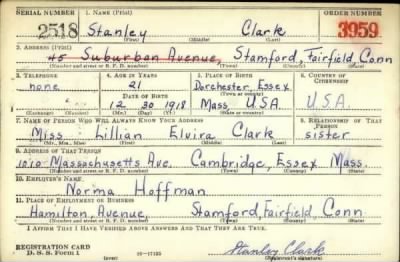 SERIAL NUMBER 1. NAME (Print) ORDER NUMBER
2518 Stanley Clark 3959
(First) (Middle) (Last)
2. ADDRESS (Print)
45 Suburban Avenue, Stamford, Fairfield, Conn
(Number and street or R. F. D. number) (Town) (County) (State)
3. TELEPHONE 4. AGE IN YEARS 5. PLACE OF BIRTH 6. COUNTRY OF CITIZENSHIP
none 21 Dorchester, Essex
DATE OF BIRTH (Town or county)
12 30 1918 Mass U.S.A. U.S.A.
(Exchange) (Number) (Mo.) (Day) (Yr.) (State or country)
7. NAME OF PERSON WHO WILL ALWAYS KNOW YOUR ADDRESS 8. RELATIONSHIP OF THAT PERSON
Miss Lillian Elvira Clark sister
(Mr., Mrs., Miss) (First) (Middle) (Last)
9. ADDRESS OF THAT PERSON
1010 Massachusetts Ave. Cambridge, Essex, Mass.
(Number and street or R. F. D. number) (Town) (County) (State)
10. EMPLOYER'S NAME
Norma Hoffman
11. PLACE OF EMPLOYMENT OR BUSINESS
Hamilton, Avenue, Stamford, Fairfield, Conn
(Number and street or R. F. D. number) (Town) (County) (State)
I AFFIRM THAT I HAVE VERIFIED ABOVE ANSWERS AND THAT THEY ARE TRUE.
REGISTRATION CARD
D. S. S. Form 1 (over) 16—17105 Stanley Clark